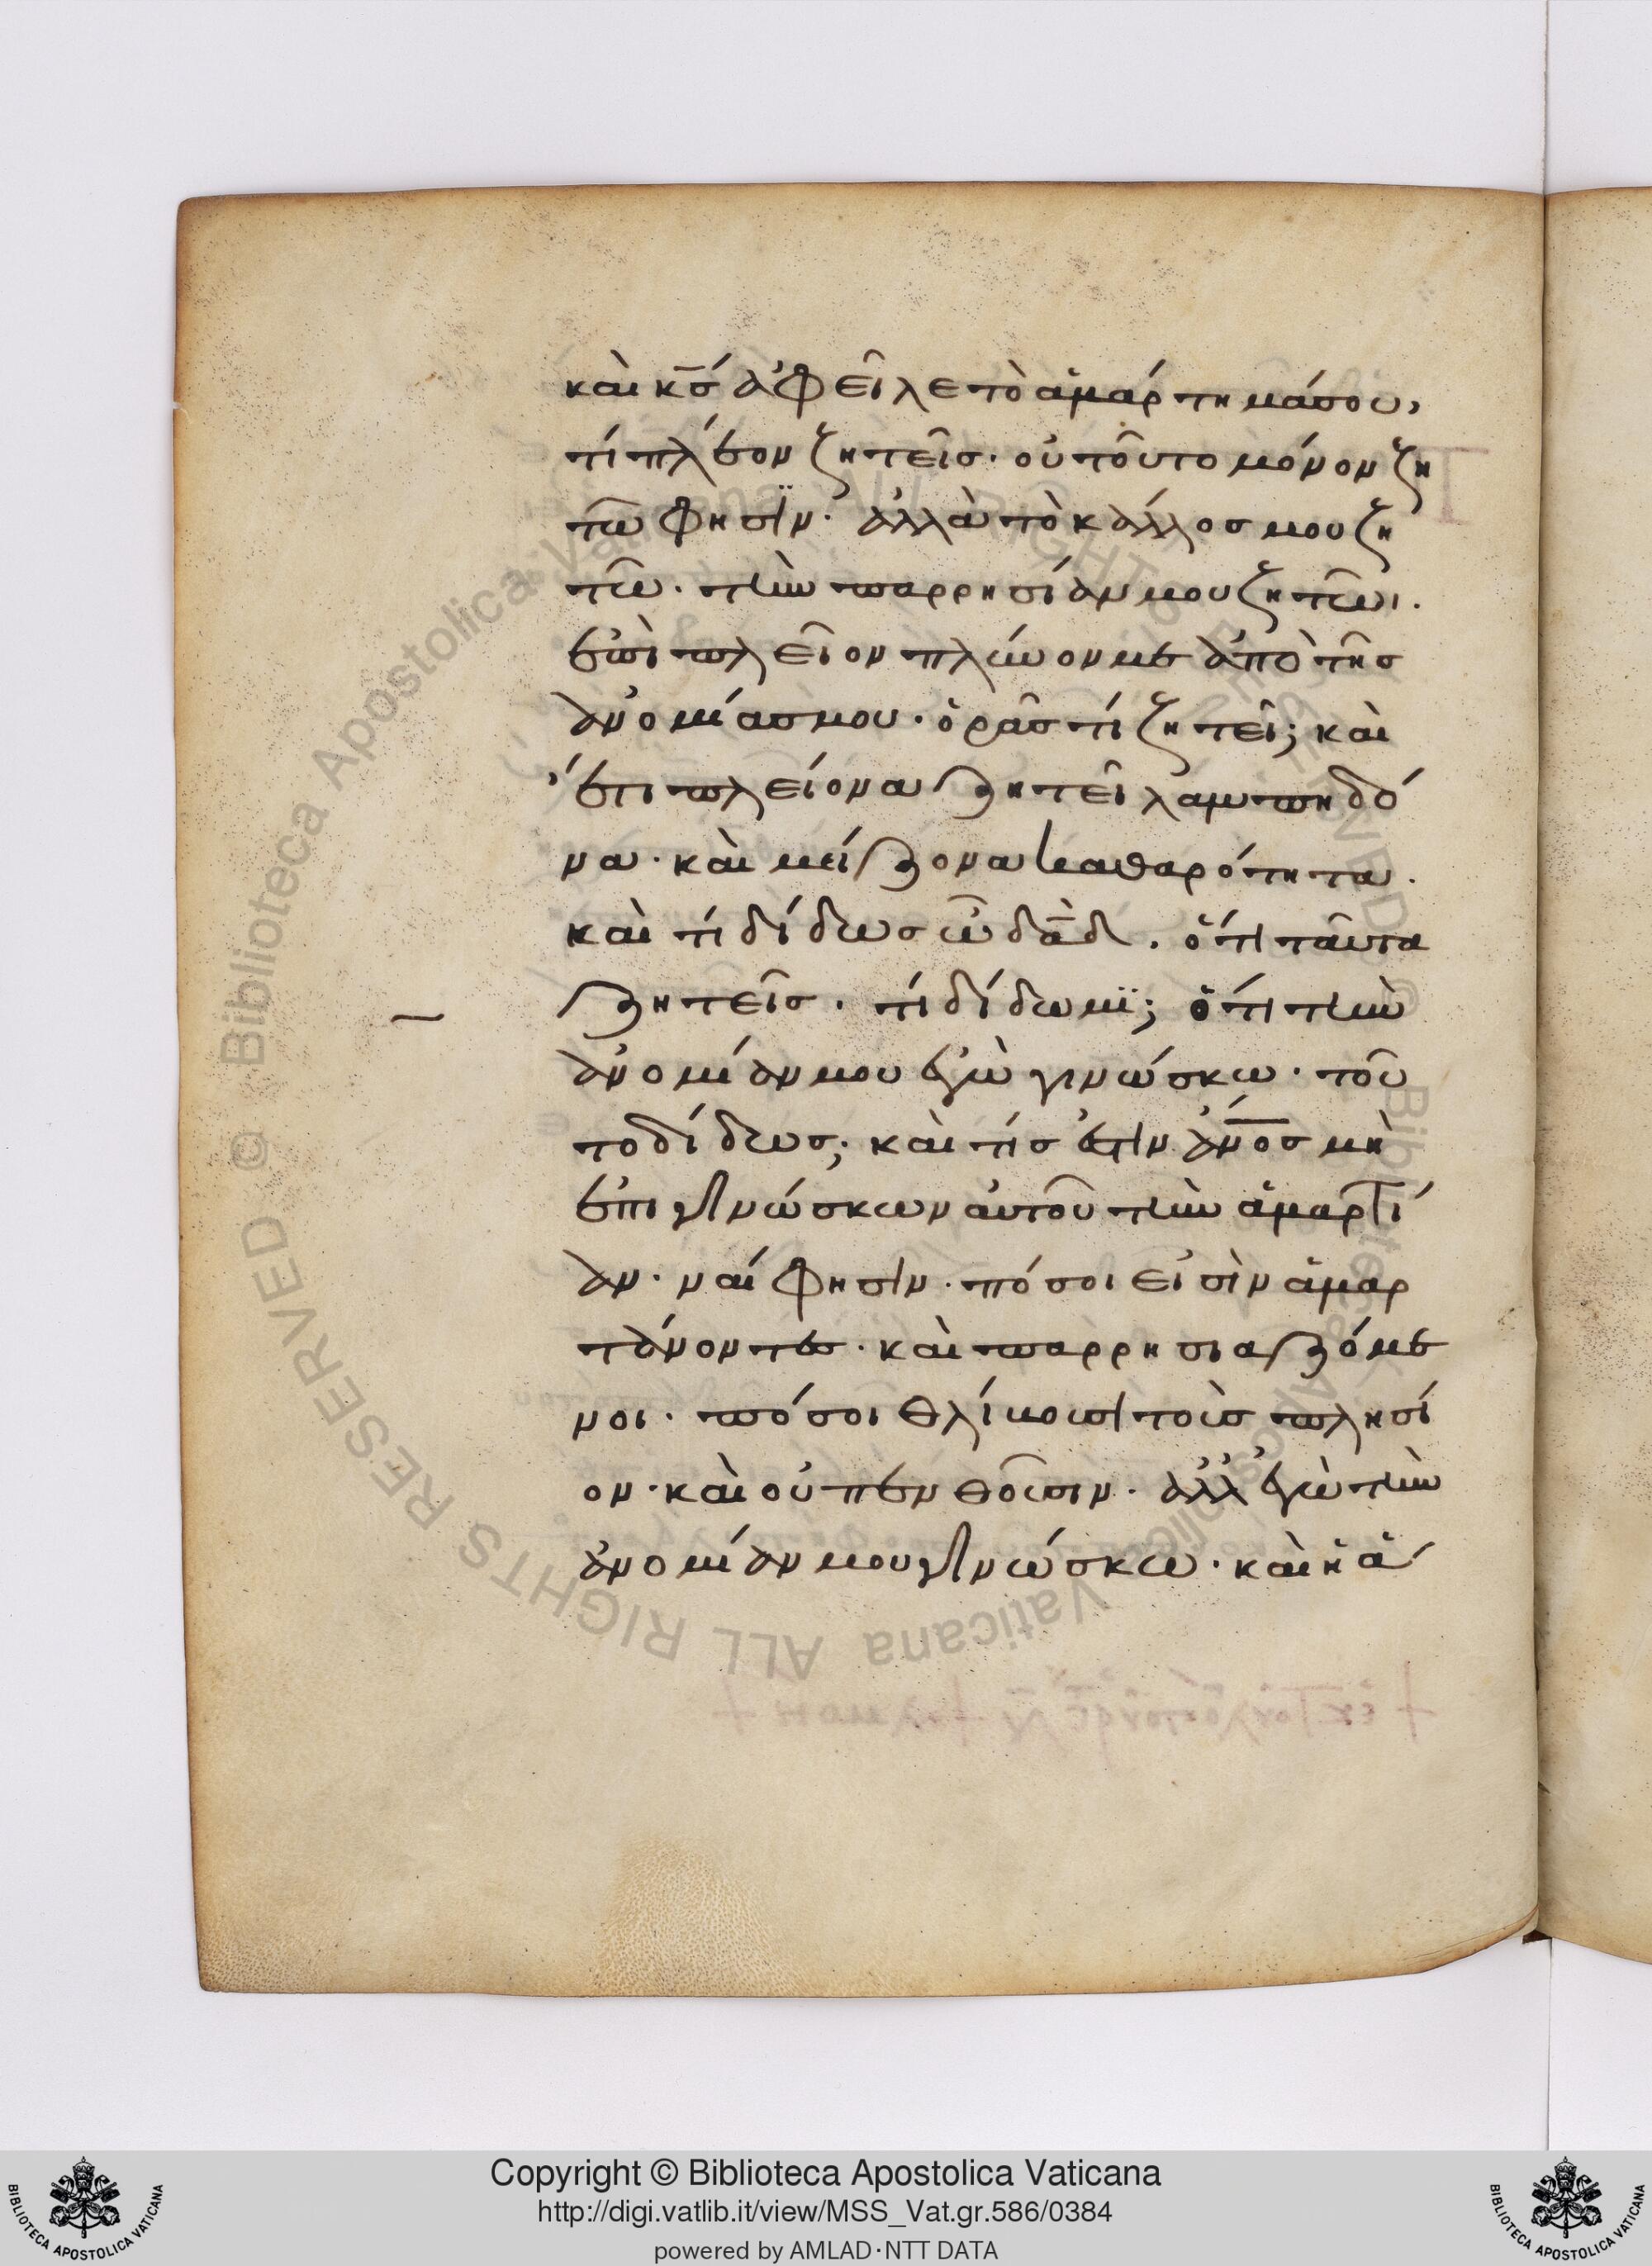 καὶ κ̅ς ἀφεῖλε τὸ ἁμάρτημά σου,
τί πλέον ζητεῖς· οὐ τοῦτο μόνον ζη
τῶ φησΐν· ἀλλὰ τὸ κάλλος μου ζη
τῶ· τὴν παρρησίαν μου ζητῶ·
ἐπὶ πλεῖον πλύνον με ἀπὸ τῆς
ἀνομίας μου· ὁρᾶς τί ζητεῖ; καὶ
ἔτι πλείονα ζητεῖ λαμπηδό
να· καὶ μείζονα καθαρότητα·
καὶ τί δίδως ὦ δᾱδ· ὅτι ταῦτα
ζητεῖς· τί δίδωμϊ; ὅτι τὴν
ἀνομίαν μου ἐγὼ γινώσκω· τοῦ
το δίδως; καὶ τίς ἐστιν ἄν̅ο̅ς μὴ
ἐπιγινώσκων αὐτοῦ τὴν ἁμαρτί
αν· ναί φησιν· πόσοι εἰσὶν ἁμαρ
τάνοντες· καὶ παρρησιαζόμε
νοι· πόσοι θλίβουσι τοὺς πλησί
ον· καὶ οὐ πενθοῦσιν· ἀλλ' ἐγὼ τὴν
ἀνομίαν μου γινώσκω· καὶ ἡ ἁ
Copyright © Biblioteca Apostolica Vaticana
http://digi.vatlib.it/view/MSS_Vat.gr.586/0384
powered by AMLAD·NTT DATA
BIBLIOTECA APOSTOLICA VATICANA
BIBLIOTECA APOSTOLICA VATICANA